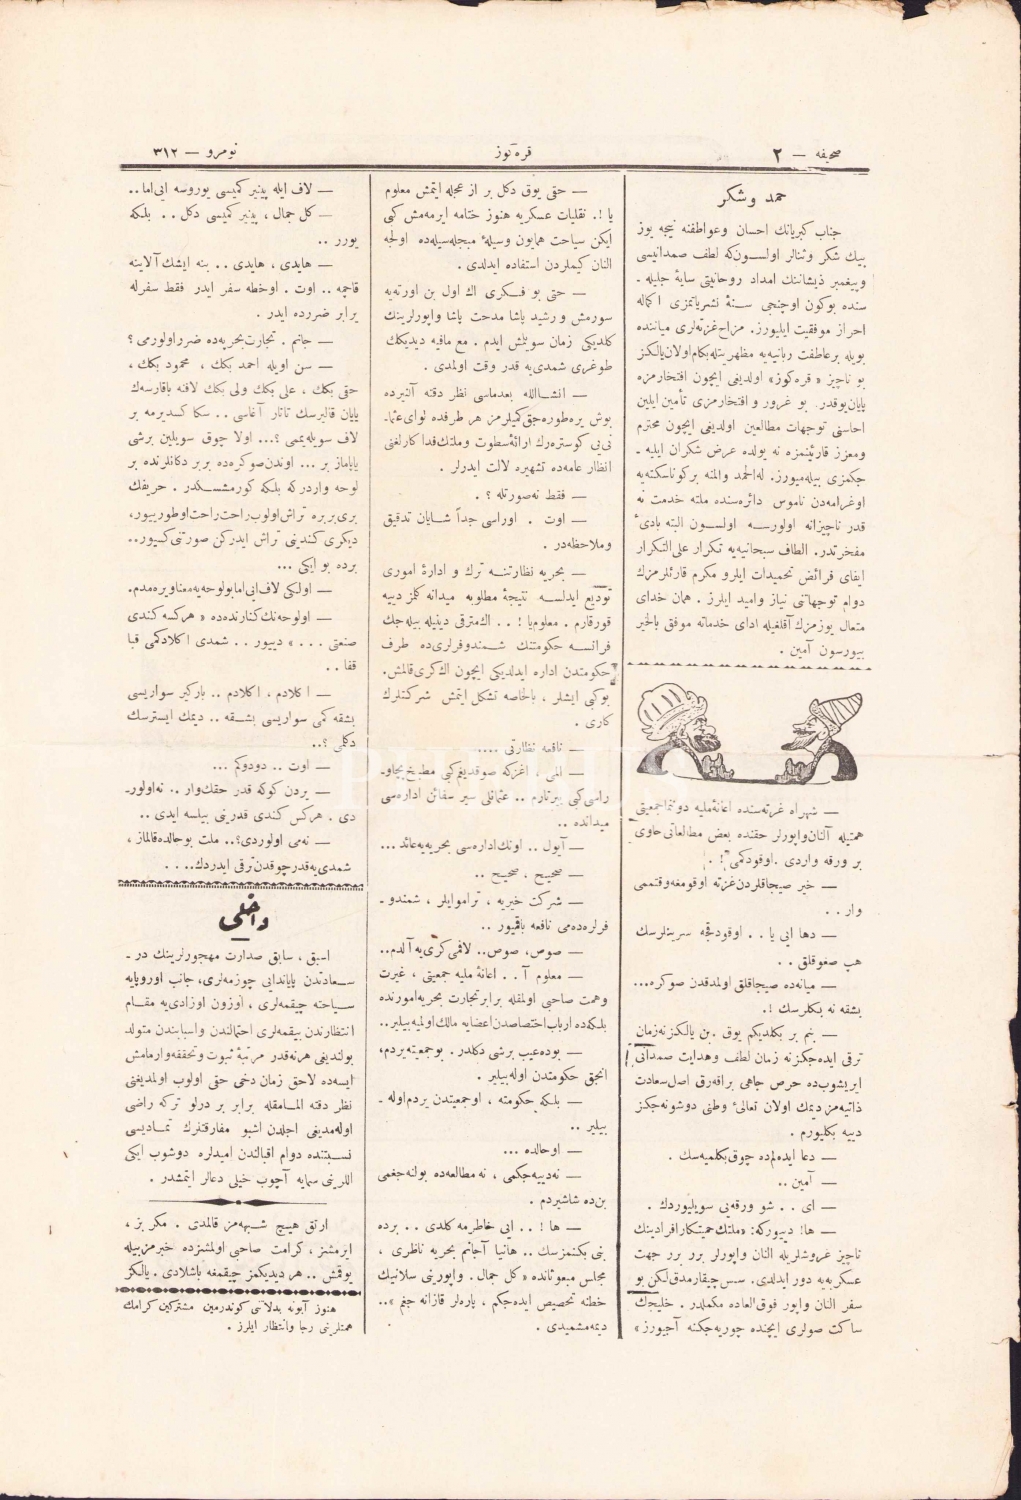 صحیفه — ٢
قره‌گوز
نومرو — ٣١٢
حمد وشکر
جناب کبریانك احسان وعواطفنه نیجه یوز
بیك شکر وثنالر اولسون‌که لطف صمدانیسی
وپیغمبر ذیشاننك امداد روحانیتی سایۀ جلیله ـ
سنده بوکون اوچنجی سنۀ نشریاتمزی اکماله
احراز موفقیت ایلیورز. مزاح غزته‌لری میاننده
بویله برعاطفت ربانیه‌یه مظهریتله‌بکام اولان یالکز
بو ناچیز « قره‌کوز» اولدیغی ایچون افتخارمزه
پایان یوقدر. بو غرور و افتخارمزی تأمین ایلین
احاسنی توجهات مطالعین اولدیغی ایچون محترم
ومعزز قارئینمزه نه یولده عرض شکران ایلیه ـ
جکمزی بیله‌میورز. له‌الحمد والمنه برکونا سکته‌یه
اوغرامه‌دن ناموس دائره‌سنده ملته خدمت نه
قدر ناچیزانه اولورسه اولسون البته بادیٔ
مفخرتدر. الطاف سبحانیه‌یه تکرار علی‌التکرار
ایفای فرائض تحمیدات ایلرو مکرم قارئلرمزك
دوام توجهاتنی نیاز وامید ایلرز. همان خدای
متعال یوزمزك آقلغیله ادای خدماته موفق بالخیر
بیورسون آمین .
— شهراه غزته‌سنده اعانۀ ملیه دونما جمعیتی
همتیله آلنان واپورلر حقنده بعض مطالعاتی حاوی
بر ورقه واردی. اوقودکمی ؟! .
— خیر صیجاقلردن غزته اوقومغه وقتممی
وار . .
— دها ایی یا . . اوقودقجه سرینلرسك
هپ صغوقلق . .
— میانه‌ده صیجاقلق اولمدقدن صوکره...
بشقه نه بکلرسك !.
— بنم بر بکلدیکم یوق. بن یالکز نه‌زمان
ترقی ایده‌جکز نه زمان لطف وهدایت صمدانی
ایریشوب‌ده حرص جاهی براقه‌رق اصل سعادت
ذاتیه‌مز دیمك اولان تعالیٔ وطنی دوشونه‌جکز
دییه بکلیورم .
— دعا ایده‌لم‌ده چوق بکلمیه‌سك .
— آمین ..
— ای . . شو ورقه‌یی سویلیوردك .
— ها! دییورکه: «ملتك حمیتکار افرادینك
ناچیز غروشلریله النان واپورلر برر برر جهت
عسکریه‌یه دور ایدلدی. سس چیقارمدق لکن بو
سفر النان واپور فوق‌العاده مکملدر. خلیجك
ساکت صولری ایچنده چوریه‌جکنه آجیورز»
— حتی یوق دکل بر از عجله ایتمش معلوم
یا !. نقلیات عسکریه هنوز ختامه ایرمه‌مش کبی
ایکن سیاحت همایون وسیلۀ مبجله‌سیله‌ده اولجه
النان کیملردن استفاده ایدلدی .
— حتی بو فکری اك اول بن اورته‌یه
سورمش و رشید پاشا مدحت پاشا واپورلرینك
کلدیکی زمان سویلش ایدم . مع مافیه دیدیکك
طوغری شمدی‌یه قدر وقت اولمدی .
— انشاالله بعدماسی نظر دقته آلنیرده
بوش یره‌طوره‌جق کمیلرمز هر طرفده لوای عثما-
نی‌یی کوستره‌رك ارائۀ سطوت وملتك فداکارلغنی
انظار عامه‌ده تشهیره لالت ایدرلر .
— فقط نه‌صورتله ؟ .
— اوت . اوراسی جداً شایان تدقیق
وملاحظه‌در .
— بحریه نظارتنه ترك و ادارۀ اموری
تودیع ایدلسه نتیجۀ مطلوبه میدانه کلمز دییه
قورقارم . معلوم‌یا ! . . اك‌مترقی دینیله بیله جك
فرانسه حکومتنك شمندوفرلری‌ده طرف
حکومتدن اداره ایدلدیکی ایچون اك‌کری قالمش.
بوکبی ایشلر ، بالخاصه تشکل ایتمش شرکتلرك
کاری .
— نافعه نظارتی ....
— المی ، اغزکه صوقدیغم‌کبی مطبخ پچاو-
راسی کبی ییرتارم .. عثمانلی سیر سفائن اداره‌سی
میدانده ..
— آیول .. اونك اداره‌سی بحریه‌یه عائد...
— صحیح ، صحیح ..
— شرکت خیریه ، تراموایلر ، شمندو ـ
فرلره‌ده‌می نافعه باقیور ..
— صوص، صوص.. لافمی کری‌یه آلدم..
— معلوم آ . . اعانۀ ملیه جمعیتی ، غیرت
وهمت صاحبی اولمقله برابر تجارت بحریه امورنده
بلکه‌ده ارباب اختصاصدن اعضایه مالك اولمیه بیلیر..
— بوده عیب برشی دکلدر . بوجمعیته یردم،
انجق حکومتدن اوله بیلیر .
— بلکه حکومته ، اوجمعیتدن یردم اوله ـ
بیلیر ..
— اوحالده ...
— نه‌دییه‌جکمی ، نه مطالعه‌ده بولنه‌جغمی
بن‌ده شاشیردم .
— ها ! . . ایی خاطرمه کلدی . . برده
بنی بکنمزسك .. هانیا آجانم بحریه ناظری ،
مجلس مبعوثانده « کل جمال . واپورینی سلانیك
خطنه تخصیص ایده‌جکم ، پاره‌لر قازانه جغم »..
دیمه‌مشمیدی .
— لاف ایله پینیر کمیسی یوروسه ایی‌اما..
— کل جمال ، پینیر کمیسی دکل .. بلکه
یورر ..
— هایدی ، هایدی .. ینه ایشك آلاینه
قاچمه .. اوت . اوخطه سفر ایدر فقط سفرله
برابر ضررده ایدر .
— جانم . تجارت بحریه‌ده ضرر اولورمی ؟
— سن اویله احمد بکك ، محمود بکك ،
حقی بکك ، علی بکك ولی بکك لافنه باقارسه‌ك
یایان قالیرسك تاتار آغاسی .. سکا کسدیرمه بر
لاف سویله‌یممی ؟... اولا چوق سویلین برشی
یاپاماز بر ... اوندن‌صوکره‌ده بربر دکانلرنده بر
لوحه واردرکه بلکه کورمشسکدر . حریفك
بری بربره تراش اولوب راحت راحت اوطورییور،
دیکری کندینی تراش ایدرکن صورتنی کسیور..
برده بو ایکی ...
— اولکی لاف ایی اما بولوحه‌یه معناویره‌مدم.
— اولوحه‌نك کنارنده‌ده « هرکسه کندی
صنعتی . . . » دییور . . شمدی اکلادکمی قبا
قفا ..
— اکلادم ، اکلادم .. بارکیر سواریسی
بشقه کمی سواریسی بشقه .. دیمك ایسترسك
دکلمی ؟..
— اوت .. دودوکم ...
— یردن کوکه قدر حقك‌وار .. نه‌اولور-
دی . هرکس کندی قدرینی بیلسه ایدی ..
— نه‌می اولوردی؟.. ملت بوحالده‌قالماز ،
شمدی‌یه قدر چوقدن ترقی ایدردك.. . .
داخلی
اسبق ، سابق صدارت مهجورلرینك در ـ
سعادتدن یاپاندایی چوزمه‌لری، جانب اوروپایه
سیاحته چیقمه‌لری ، اوزون اوزادی‌یه مقام
انتظارندن بیقمه‌لری احتمالندن واسبابندن متولد
بولندیغی هرنه‌قدر مرتبۀ ثبوت وتحققه‌وارمامش
ایسه‌ده لاحق زمان دخی حقی اولوب اولمدیغنی
نظر دقته المامقله برابر بر درلو ترکه راضی
اوله‌مدیغی اجلدن اشبو مفارقتلرك تمادیسی
نسبتنده دوام اقبالندن امیدلره دوشوب ایکی
اللرینی سمایه آچوب خیلی دعالر ایتمشدر .
ارتق هیچ شبهه‌مز قالمدی . مکر بز ،
ایرمشز ، کرامت صاحبی اولمشزده خبرمزبیله
یوقمش .. هر دیدیکمز چیقمغه باشلادی . یالکز
هنوز آبونه بدلاتنی کوندرمین مشترکین کرامك
همتلرینی رجا وانتظار ایلرز .